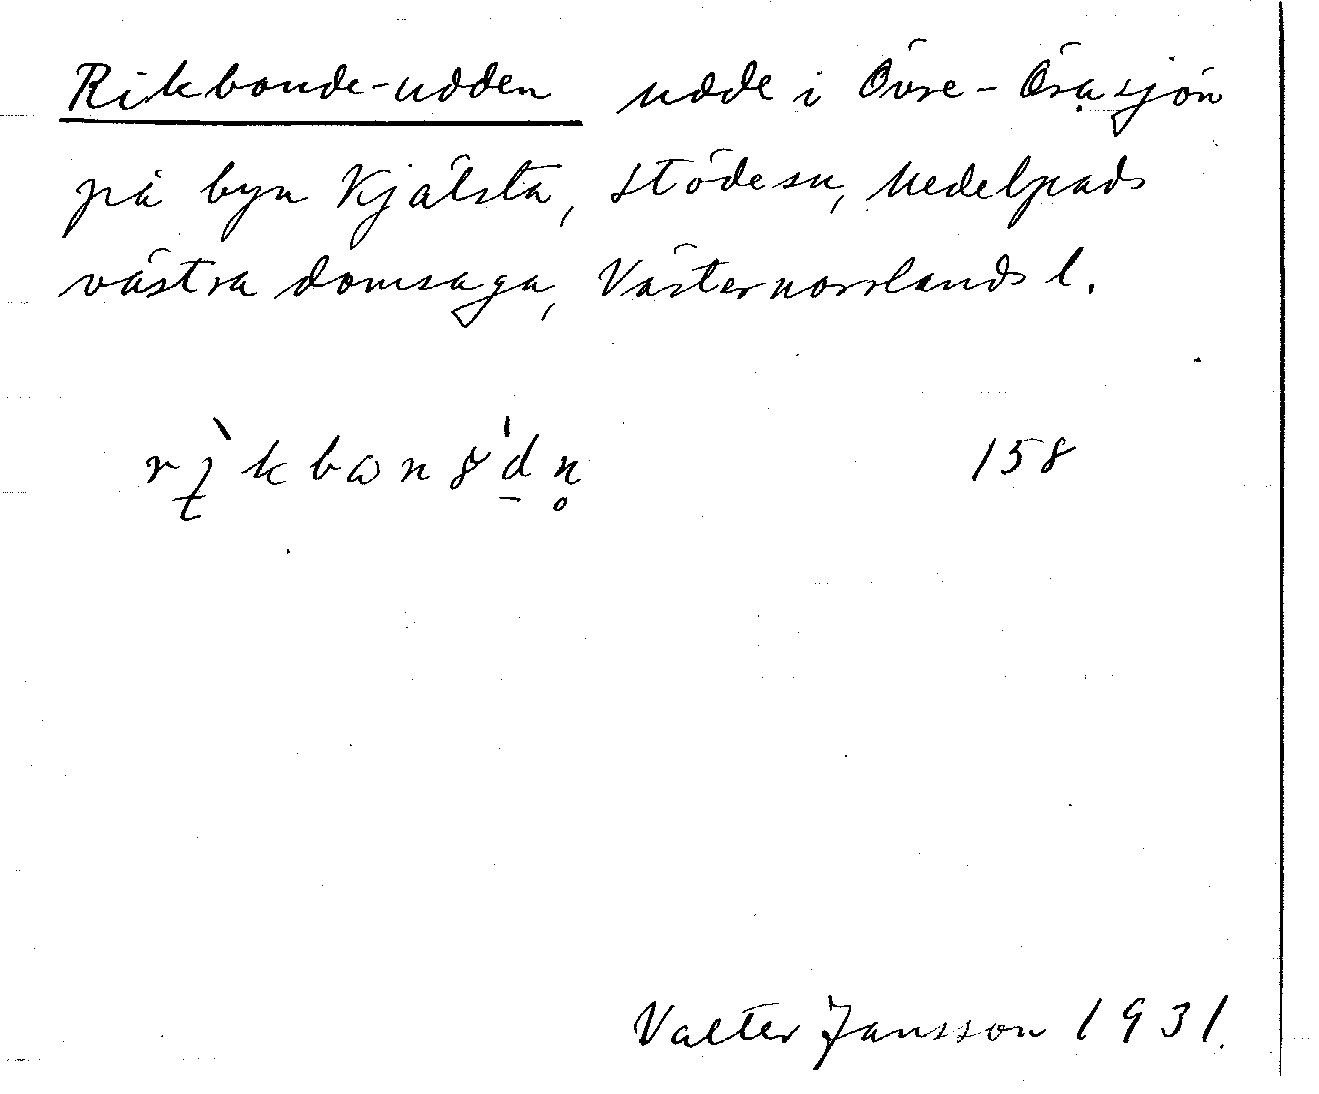 Rikbonde-udden udde i Övre-Örasjön
på byn Kjälsta, Stöde sn, Medelpads
västra domsaga, Västernorrlands l.
158
Valter Jansson 1931.